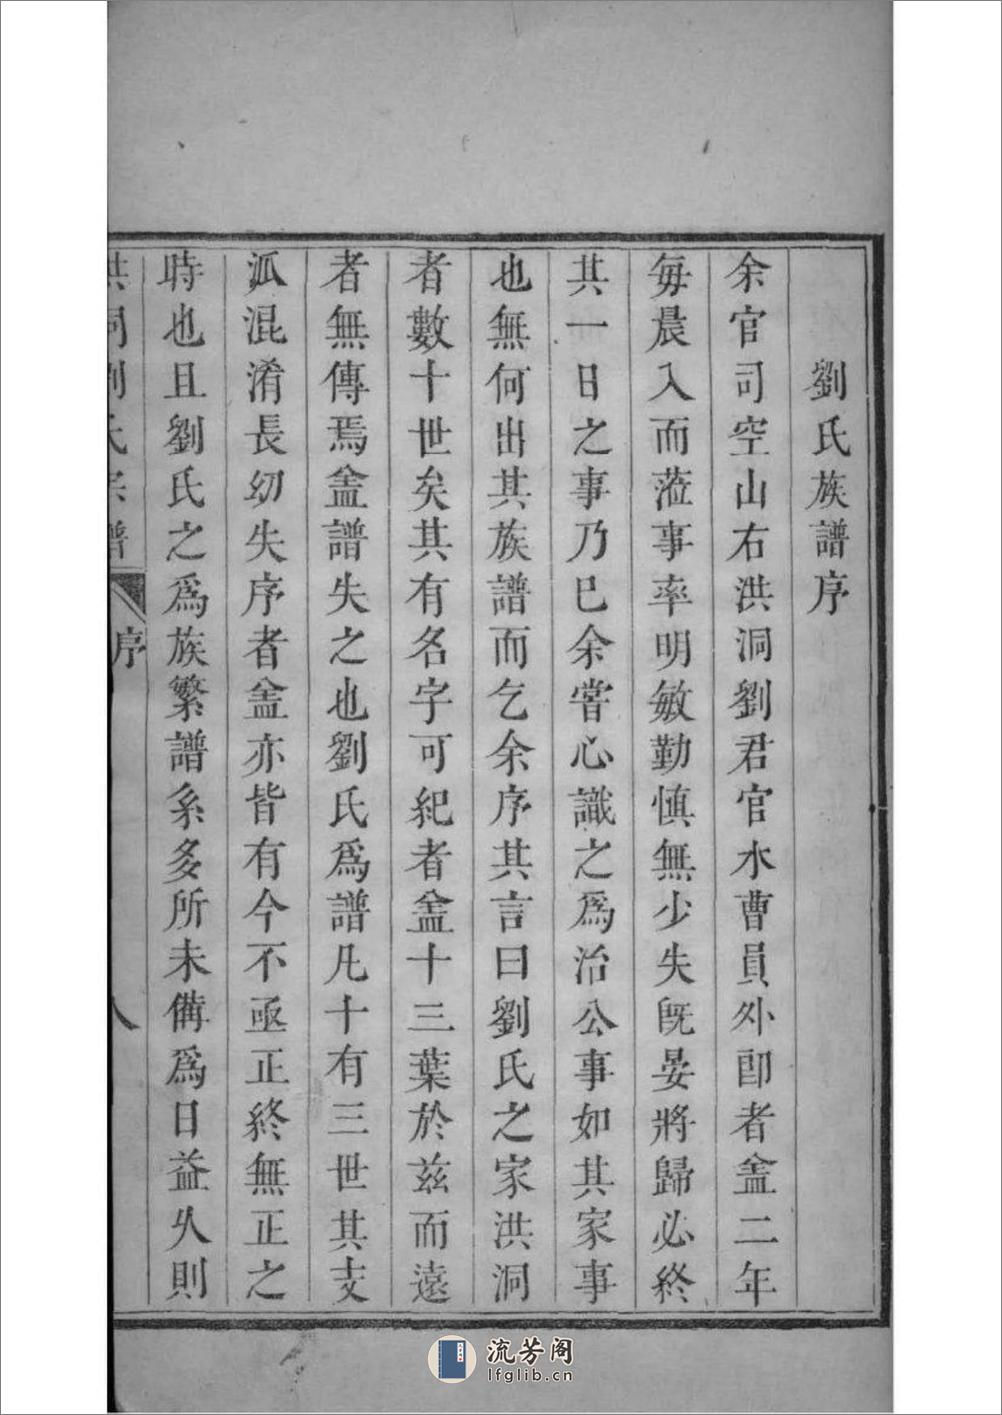 劉氏族譜序
余官司空山右洪洞劉君官水曹員外郎者盖二年
每晨入而蒞事率明敏勤慎無少失旣晏將歸必終
其一日之事乃巳余嘗心識之為治公事如其家事
也無何出其族譜而乞余序其言曰劉氏之家洪洞
者數十世矣其有名字可紀者盖十三葉於兹而遠
者無傳焉盖譜失之也劉氏爲譜凡十有三世其支
派混淆長幼失序者盖亦皆有今不亟正終無正之
時也且劉氏之爲族繁譜系多所未備爲日益久則
洪洞劉氏宗譜 序 八
流芳阁
lfglib.cn